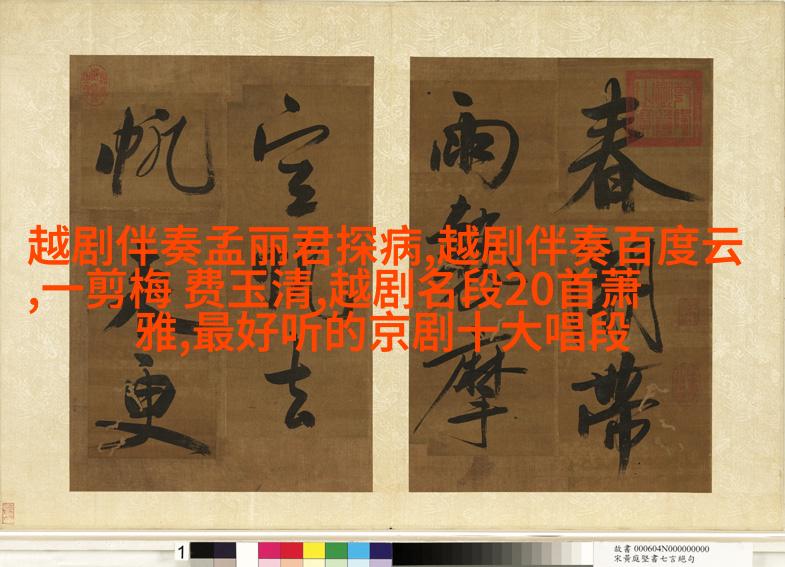 春
帶
雨
摩
空
去
帆
更
越剧伴奏孟丽君探病,越剧伴奏百度云
,一剪梅 费玉清,越剧名段20首萧
雅,最好听的京剧十大唱段
1
故書 000604N000000000
宋黃庭堅書七言絕句